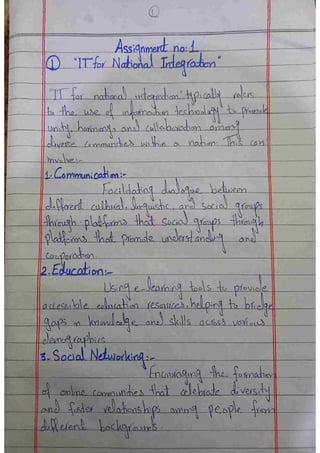 ①
Assignment no:1
① "IT for National Integration"
"IT for national integration" typically refers
to the use of information technology to promote
unity, harmony, and collaboration among
diverse communities within a nation. This can
involve:-
1. Communication:-
Facilitating dialogue between
different cultural, linguistic, and social groups
through platforms that social groups through
platforms that promote understanding and
cooperation.
2. Education:-
Using e-learning tools to provide
accessible education resources, helping to bridge
gaps in knowledge and skills across various
demographics
3. Social Networking:-
Encouraging the formation
of online communities that celebrate diversity
and foster relationships among people from
different backgrounds.